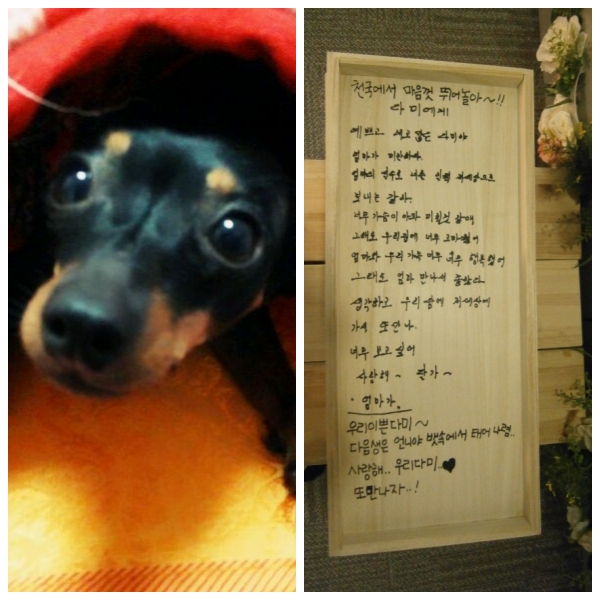 천국에서 마음껏 뛰어놀아~!!
다미에게
예쁘고 새로 닮은 다미야
엄마가 미안하다.
엄마의 실수로 너를 인해 저세상으로
보내는 같아.
너무 가슴이 아파 미칠것 같애
그래도 우리곁에 너무 고마웠어
엄마와 우리 가족 너무 행복했어
그래도 엄마 만나서 좋았다
생각하고 우리 함께 저세상에
가서 또 만나.
너무 보고싶어
사랑해~ 잘가~
· 엄마가.
우리이쁜다미~
다음생은 언니야 뱃속에서 태어나렴..
사랑해.. 우리다미..♥
또만나자..!